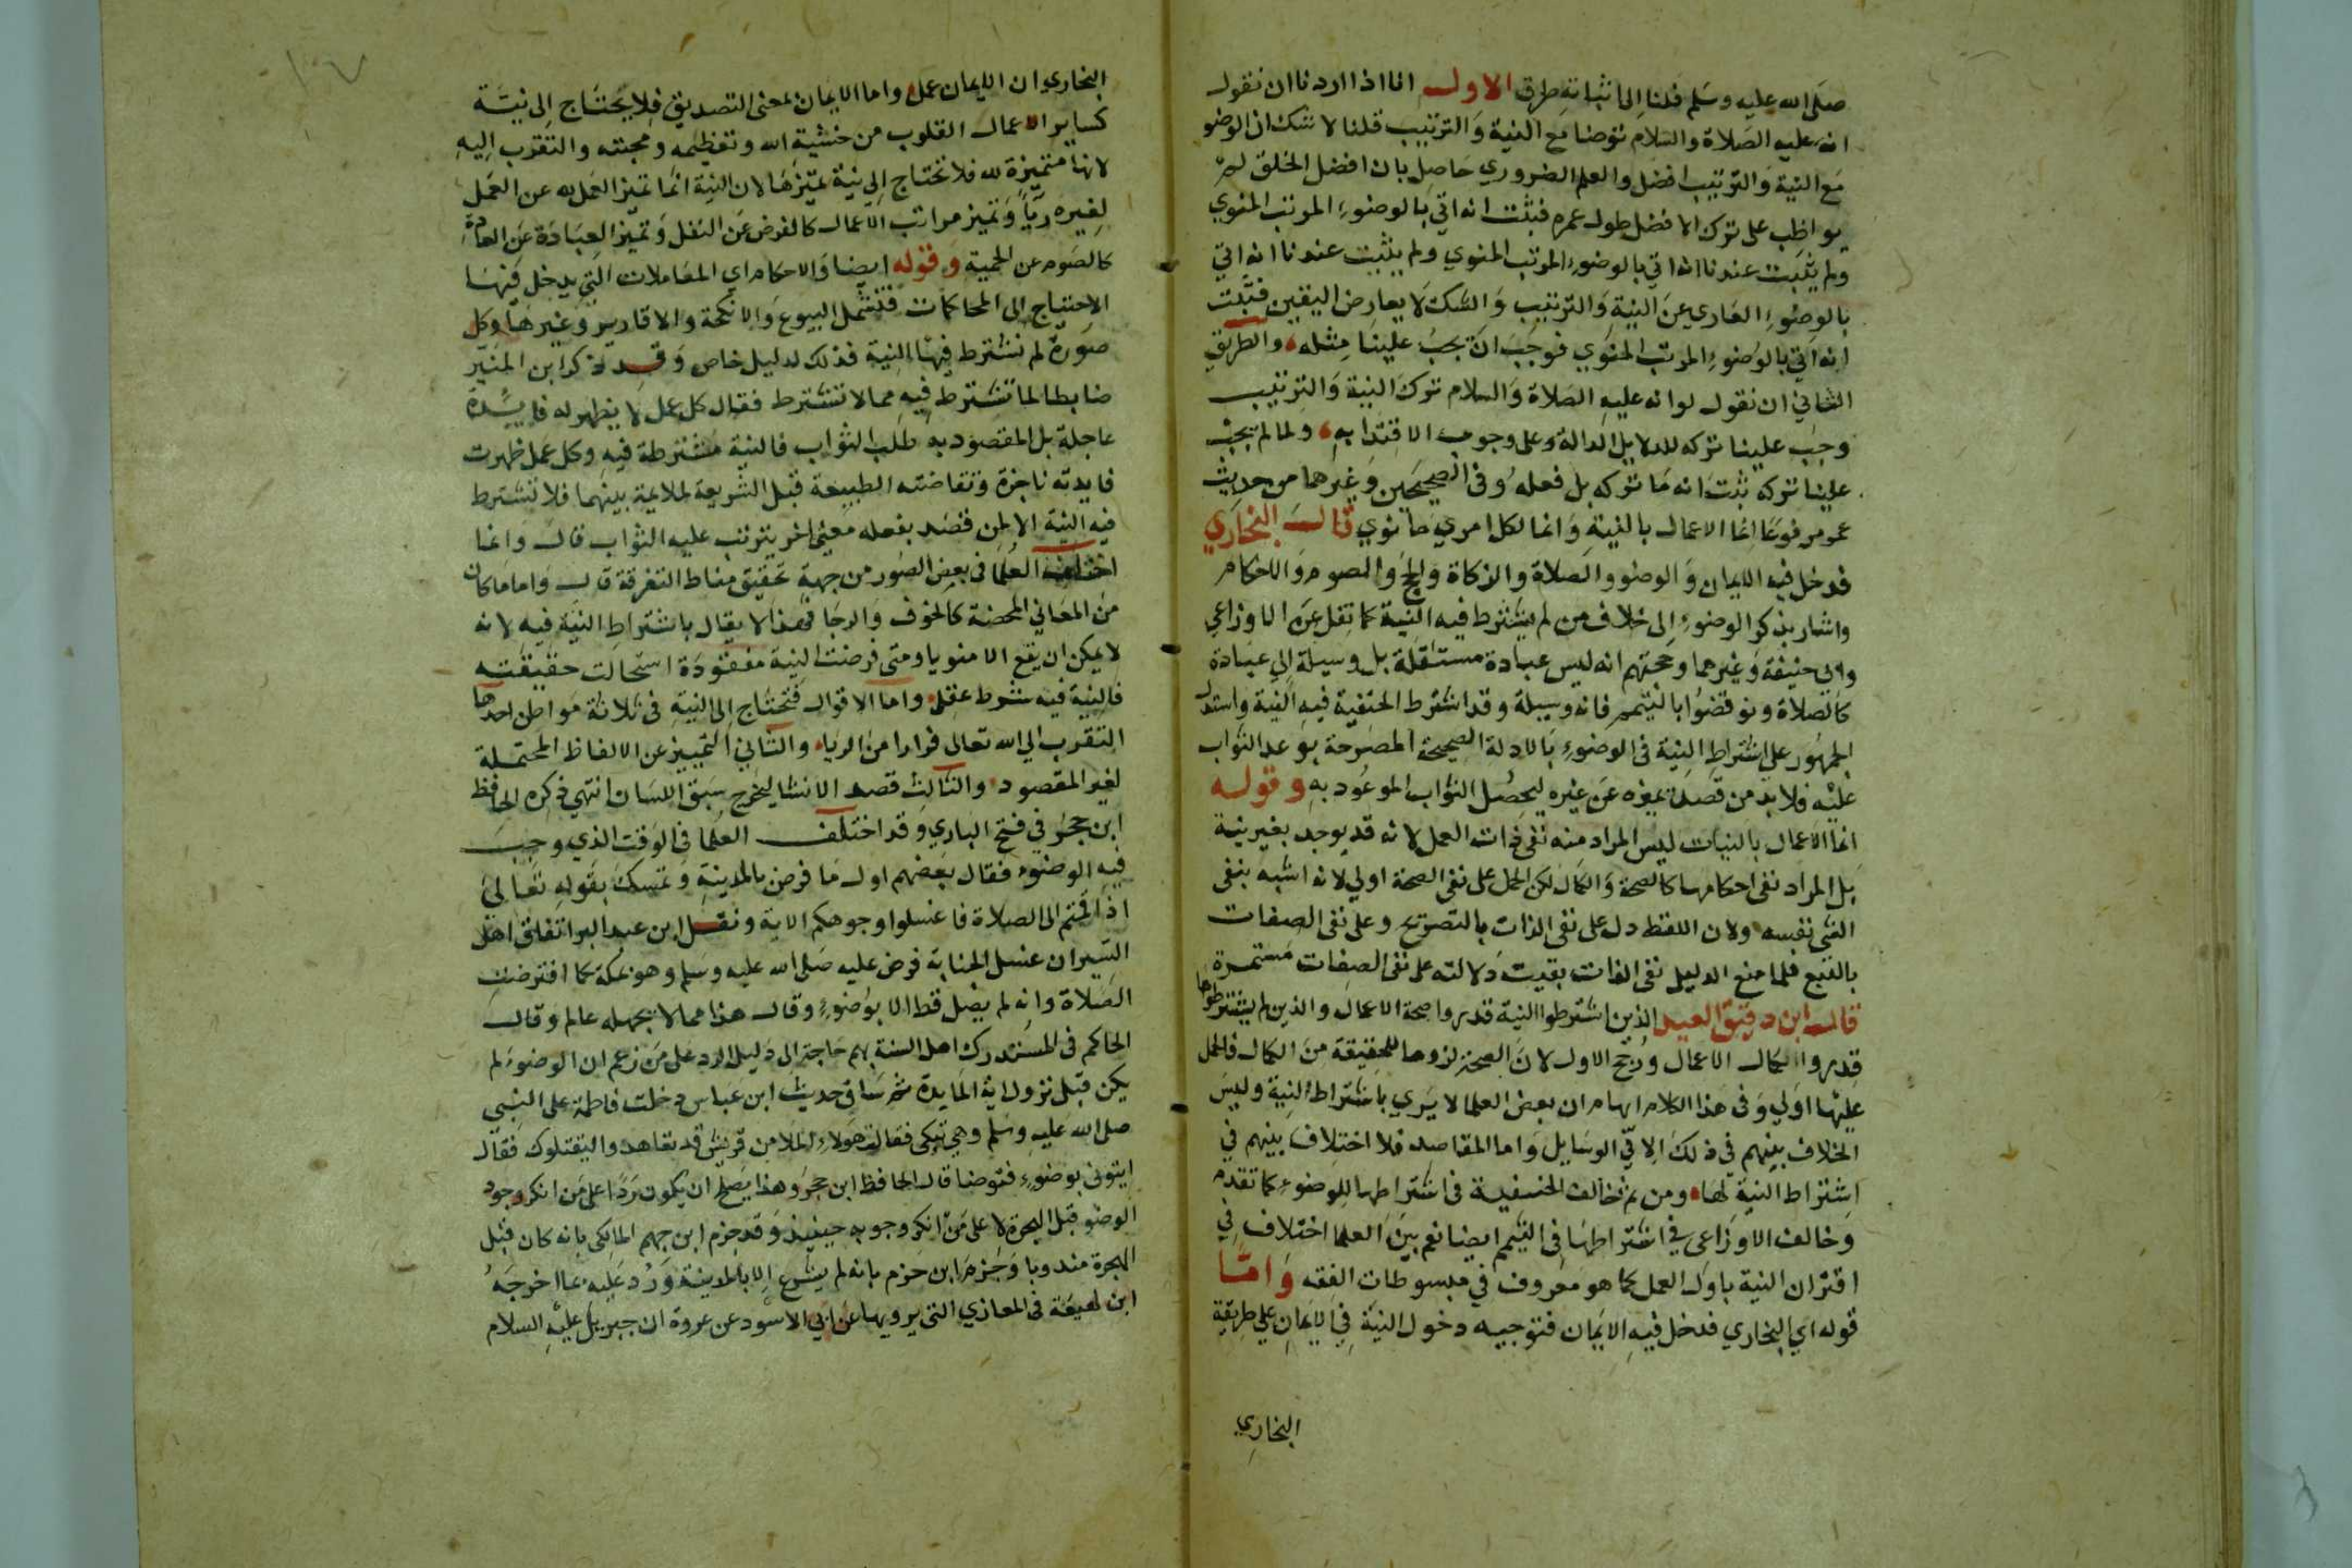 صلى الله عليه وسلم قلنا الى اثباته طرق الاول انا اذا اردنا ان نقول
انه عليه الصلاة والسلام توضا مع النية والترتيب قلنا لا شك ان الوضو
مع النية والترتيب افضل والعلم الضروري حاصل بان افضل الخلق لم
يواظب على ترك الافضل طول عمره فثبت انه اتي بالوضوء المرتب المنوي
ولم يثبت عندنا انه اتي بالوضوء المرتب المنوي ولم يثبت عندنا انه اتي
بالوضوء العاري عن النية والترتيب والشك لا يعارض اليقين فثبت
انه اتي بالوضوء المرتب المنوي فوجب ان يجب علينا مثله والطريق
الثاني ان نقول لو انه عليه الصلاة والسلام ترك النية والترتيب
وجب علينا تركه للدلايل الدالة على وجوب الاقتدا به ولما لم يجب
علينا تركه ثبت انه ما تركه بل فعله وفى الصحيحين وغيرهما من حديث
عمر مرفوعا انما الاعمال بالنية وانما لكل امري ما نوي قال البخاري
فدخل فيه الايمان والوضو والصلاة والزكاة والحج والصوم والاحكام
واشار بذكر الوضوء الى خلاف من لم يشترط فيه النية كما نقل عن الاوزاعي
وابى حنيفة وغيرهما وحجتهم انه ليس عبادة مستقلة بل وسيلة الى عبادة
كالصلاة ونوقضوا بالتيمم فانه وسيلة وقد اشترط الحنفية فيه النية واستدل
الجمهور على اشتراط النية فى الوضوء بالادلة الصحيحة المصرحة بوعد الثواب
عليه فلابد من قصد يميزه عن غيره ليحصل الثواب الموعود به وقوله
انما الاعمال بالنيات ليس المراد منه نفى ذات العمل لانه قد يوجد بغير نية
بل المراد نفى احكامها كالصحة والكمال لكن الحمل على نفى الصحة اولى لانه اشبه بنفى
الشى نفسه ولان اللفظ دل على نفى الذات بالتصريح وعلى نفى الصفات
بالتبع فلما منع الدليل نفى الذات بقيت دلالته على نفى الصفات مستمرة
قال ابن دقيق العيد الذين اشترطوا النية قدروا صحة الاعمال والذين لم يشترطوها
قدروا كمال الاعمال ورجح الاول لان الصحة لزوما للحقيقة من الكمال فالحمل
عليها اولي وفى هذا الكلام ايهام ان بعض العلما لا يري باشتراط النية وليس
الخلاف بينهم في ذلك الا في الوسايل واما المقاصد فلا اختلاف بينهم في
اشتراط النية لها ومن ثم خالف الحنفية فى اشتراطها للوضوء كما تقدم
وخالف الاوزاعي في اشتراطها فى التيمم ايضا نعم بين العلما اختلاف في
اقتران النية باول العمل كما هو معروف في مبسوطات الفقه واما
قوله اي البخاري فدخل فيه الايمان فتوجيه دخول النية في الايمان علي طريقة
البخاري
١٠٧
البخاري ان الايمان عمل واما الايمان بمعنى التصديق فلا يحتاج الى نية
كساير الاعمال القلوب من خشية الله وتعظيمه ومحبته والتقرب اليه
لانها متميزة لله فلا تحتاج الي نية تميزها لان النية انما تميز العمل لله عن العمل
لغيره ريا وتميز مراتب الاعمال كالفرض عن النفل وتميز العبادة عن العادة
كالصوم عن الحمية وقوله ايضا والاحكام اي المعاملات التي يدخل فيها
الاحتياج الى المحاكمات فتشمل البيوع والانكحة والاقارير وغيرها وكل
صورة لم تشترط فيها النية فذلك لدليل خاص وقد ذكر ابن المنير
ضابطا لما تشترط فيه مما لا تشترط فقال كل عمل لا يظهر له فايدة
عاجلة بل المقصود به طلب الثواب فالنية مشترطة فيه وكل عمل ظهرت
فايدته ناجزة وتقاضته الطبيعة قبل الشريعة لملايمة بينهما فلا تشترط
فيه النية الا لمن قصد بفعله معنى اخر يترتب عليه الثواب قال وانما
اختلف العلما فى بعض الصور من جهة تحقيق مناط التفرقة قال واما ما كان
من المعاني المحضة كالخوف والرجا فهذا لا يقال باشتراط النية فيه لانه
لا يمكن ان يقع الا منويا ومتى فرضت النية مفقودة استحالت حقيقته
فالنية فيه شرط عقلي واما الاقوال فتحتاج الى النية فى ثلاثة مواطن احدها
التقرب الي الله تعالى فرارا من الرياء والثاني التمييز عن الالفاظ المحتملة
لغير المقصود والثالث قصد الانشا ليخرج سبق اللسان انتهي ذكره الحافظ
ابن حجر في فتح الباري وقد اختلف العلما فى الوقت الذي وجب
فيه الوضوء فقال بعضهم اول ما فرض بالمدينة وتمسك بقوله تعالى
اذا قمتم الى الصلاة فاغسلوا وجوهكم الاية ونقل ابن عبد البر اتفاق اهل
السير ان غسل الجنابة فرض عليه صلى الله عليه وسلم وهو بمكة كما افترضت
الصلاة وانه لم يصل قط الا بوضوء وقال هذا مما لا يجهله عالم وقال
الحاكم فى المستدرك اهل السنة بهم حاجة الى دليل الرد على من زعم ان الوضوء لم
يكن قبل نزول اية المايدة ثم ساق حديث ابن عباس دخلت فاطمة على النبي
صلى الله عليه وسلم وهي تبكى فقالت هولاء الملا من قريش قد تعاهدوا ليقتلوك فقال
ايتونى بوضوء فتوضا قال الحافظ ابن حجر وهذا يصلح ان يكون ردا على من انكر وجود
الوضو قبل الهجرة لا على من انكر وجوبه حينيذ وقد جزم ابن جهم المالكى بانه كان قبل
الهجرة مندوبا وجزم ابن حزم بانه لم يشرع الا بالمدينة ورد عليه بما اخرجه
ابن لهيعة فى المغازي التى يرويها عن ابي الاسود عن عروة ان جبريل عليه السلام